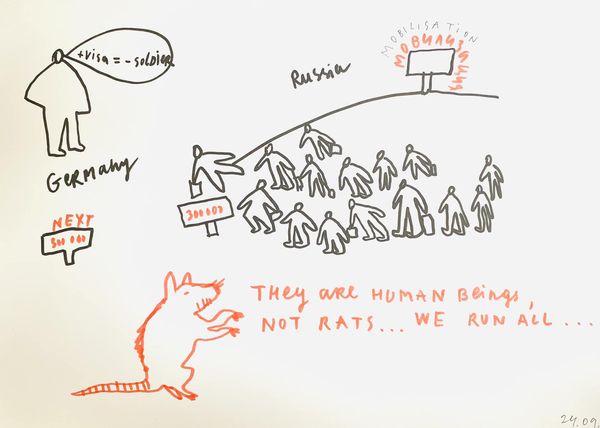 MOBILISATION
МОБИЛИЗАЦИЯ
+visa = - soldier
Russia
Germany
300 000
NEXT
They are HUMAN Beings,
NOT RATS... WE RUN ALL ...
24.09.